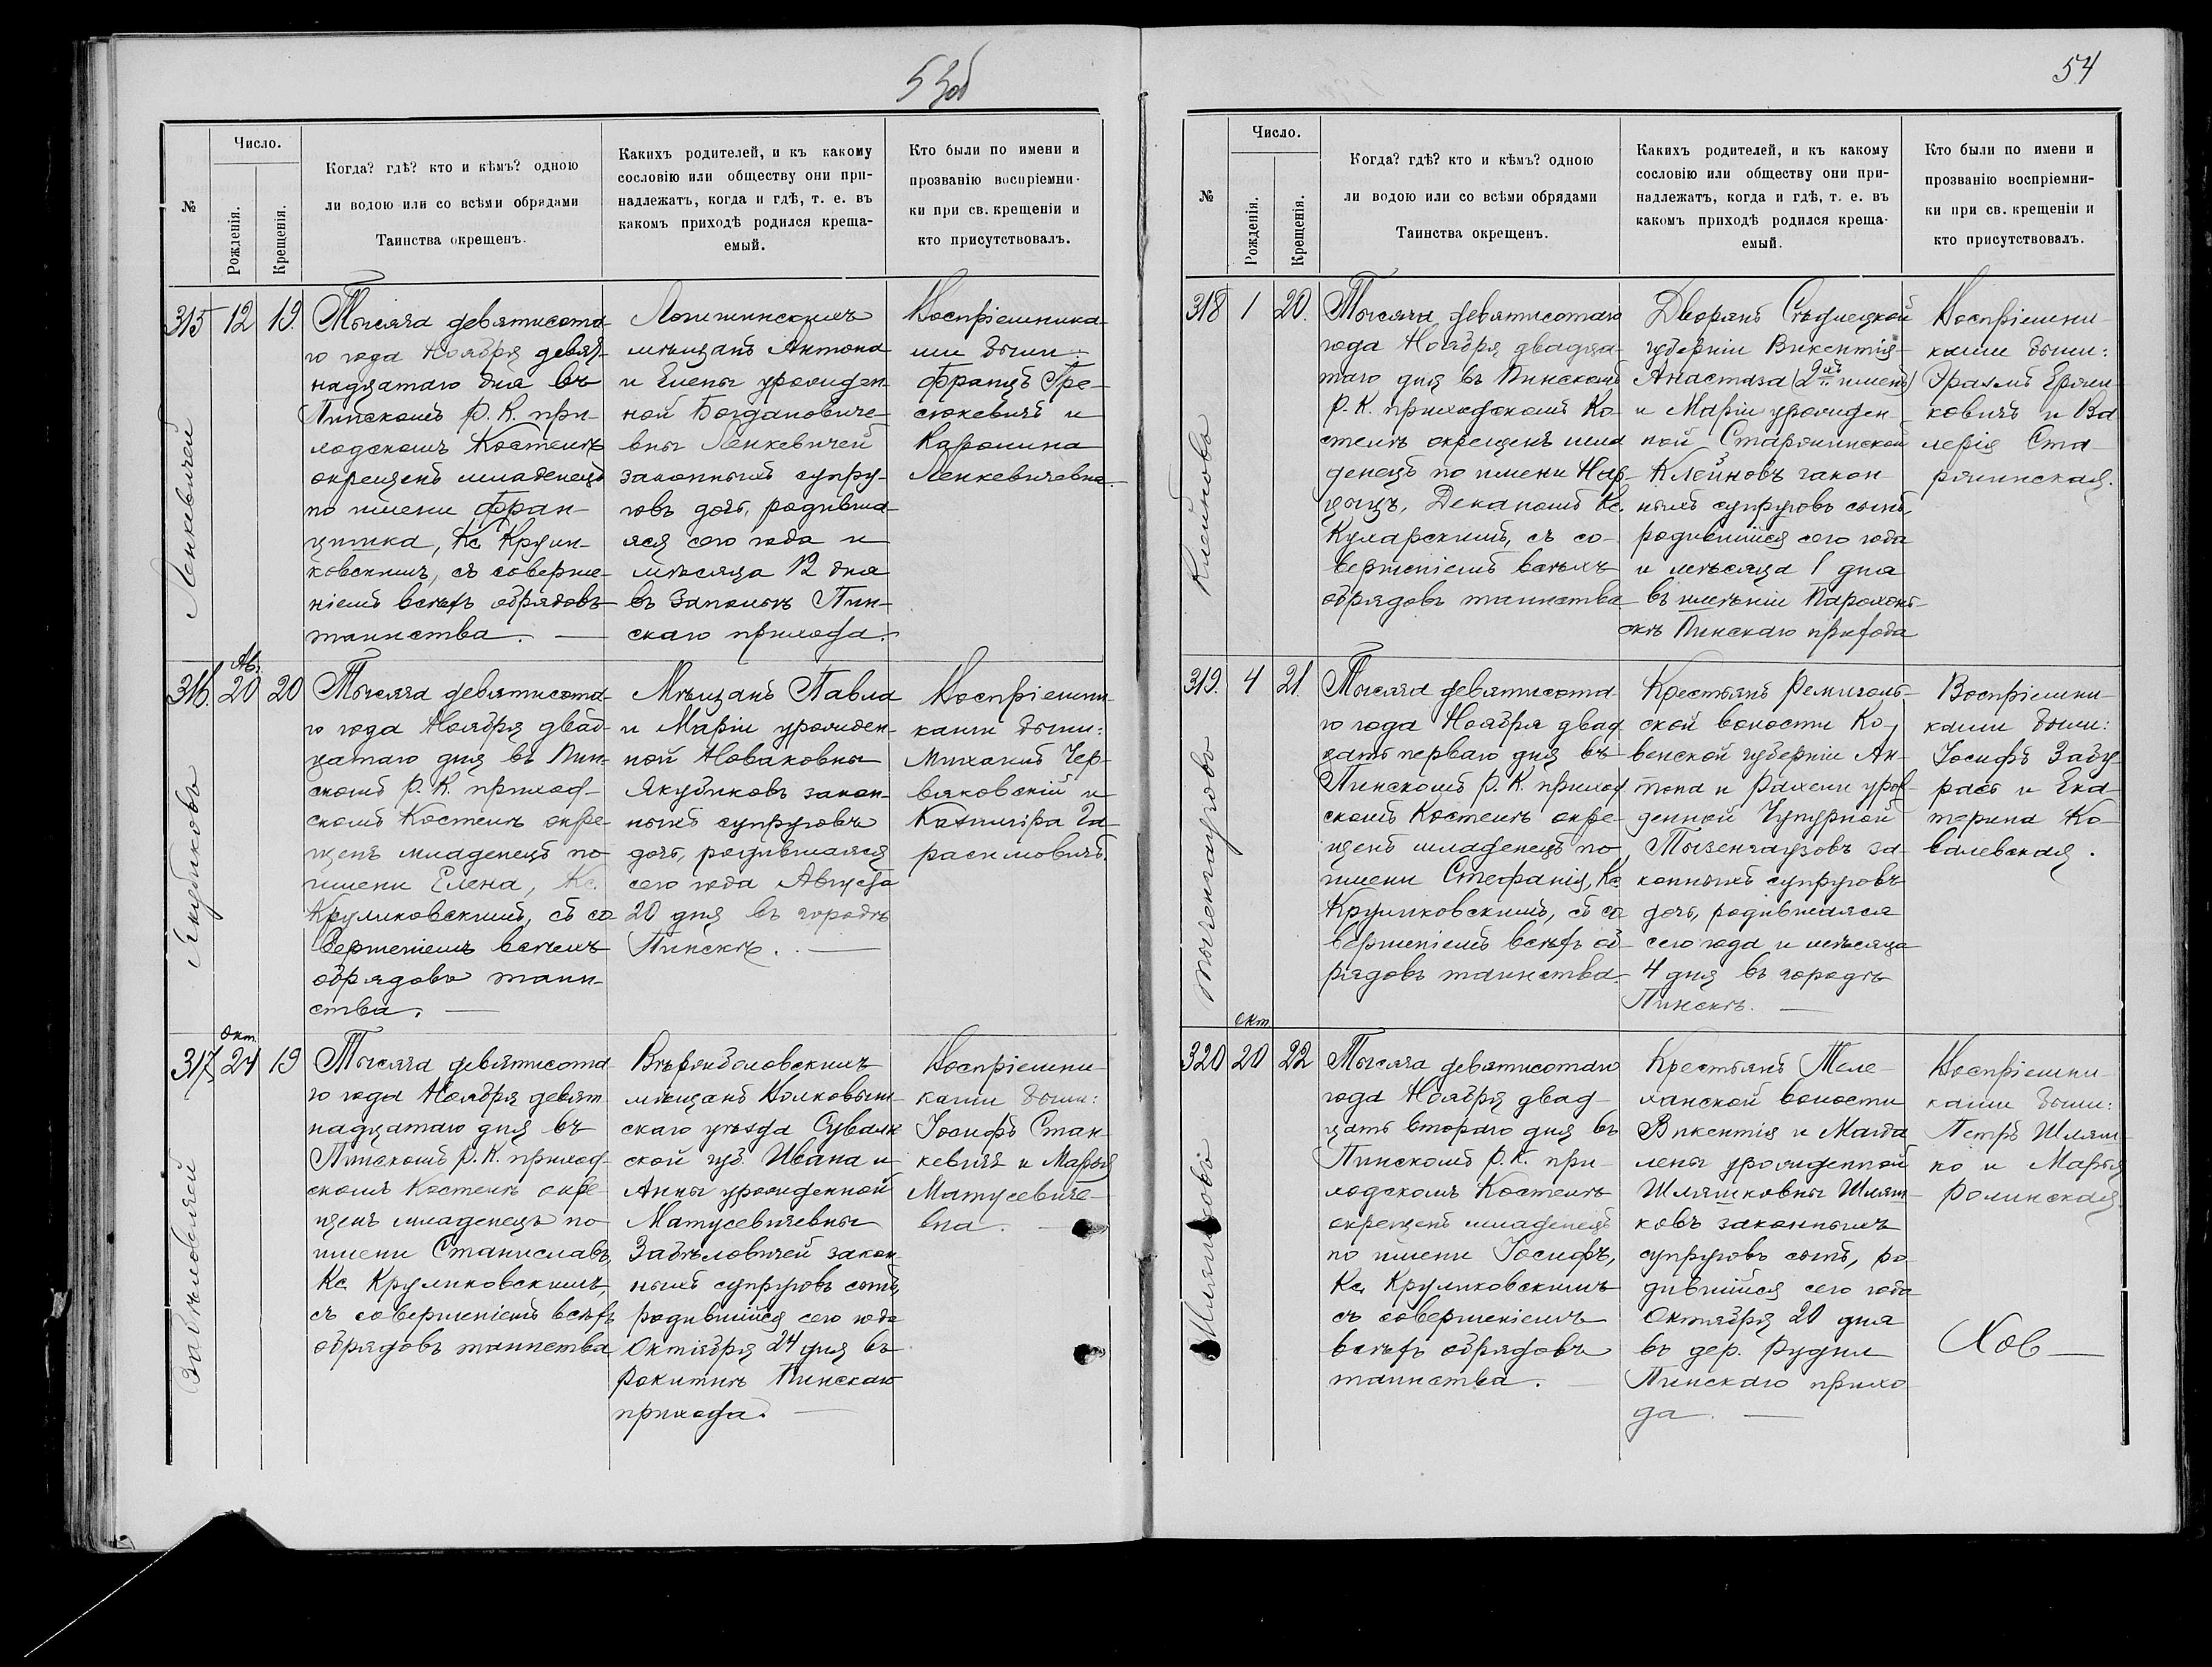 53об
№
Число.
Рожденія.
Крещенія.
Когда? гдѣ? кто и кѣмъ? одною
ли водою или со всѣми обрядами
Таинства окрещенъ.
Какихъ родителей, и къ какому
сословію или обществу они при-
надлежатъ, когда и гдѣ, т. е. въ
какомъ приходѣ родился креща-
емый.
Кто были по имени и
прозванію воспріемни-
ки при св. крещеніи и
кто присутствовалъ.
Ленкевичей
315 12 19.
Тысяча девятисота-
го года Ноября девят-
надцатаго дня въ
Пинскомъ Р. К. при-
ходскомъ Костелѣ
окрещенъ младенецъ
по имени Фран-
цишка, Кс. Крули-
ковскимъ, съ соверше-
ніемъ всѣхъ обрядовъ
таинства.
Логишинскихъ
мѣщанъ Антона
и Елены урожден-
ной Богдановиче-
вны Ленкевичей
законныхъ супру-
говъ дочь, родивша-
яся сего года и
мѣсяца 12 дня
въ Запольѣ Пин-
скаго прихода.
Воспріемника-
ми были:
Францъ Гре-
сюкевичъ и
Каролина
Ленкевичевна.
Якубиковъ
316. Ав. 20 20
Тысяча девятисота-
го года Ноября двад-
цатаго дня въ Пин-
скомъ Р. К. приход-
скомъ Костелѣ окре-
щенъ младенецъ по
имени Елена, Кс.
Круликовскимъ, съ со-
вершеніемъ всѣхъ
обрядовъ таин-
ства.
Мѣщанъ Павла
и Маріи урожден-
ной Новаковны
Якубиковъ закон-
ныхъ супруговъ
дочь, родившаяся
сего года Августа
20 дня въ городѣ
Пинскѣ.
Воспріемни-
ками были:
Михаилъ Чер-
вяковскій и
Казимира Га-
расимовичъ.
Забѣловичей
317. Окт. 24 19
Тысяча девятисота-
го года Ноября девят-
надцатаго дня въ
Пинскомъ Р. К. приход-
скомъ Костелѣ окре-
щенъ младенецъ по
имени Станиславъ,
Кс. Круликовскимъ,
съ совершеніемъ всѣхъ
обрядовъ таинства
Вержболовскихъ
мѣщанъ Волковыш-
скаго уѣзда Сувалк-
ской губ. Ивана и
Анны урожденной
Матусевичевны
Забѣловичей закон-
ныхъ супруговъ сынъ,
родившійся сего года
Октября 24 дня въ
Рокитнѣ Пинскаго
прихода.
Воспріемни-
ками были:
Іосифъ Стан-
кевичъ и Марья
Матусевиче-
вна.
54
№
Число.
Рожденія.
Крещенія.
Когда? гдѣ? кто и кѣмъ? одною
ли водою или со всѣми обрядами
Таинства окрещенъ.
Какихъ родителей, и къ какому
сословію или обществу они при-
надлежатъ, когда и гдѣ, т. е. въ
какомъ приходѣ родился креща-
емый.
Кто были по имени и
прозванію воспріемни-
ки при св. крещеніи и
кто присутствовалъ.
Клейновъ
318 1 20.
Тысяча девятисотаго
года Ноября двадца-
таго дня въ Пинскомъ
Р. К. приходскомъ Ко-
стелѣ окрещенъ мла-
денецъ по имени Нар-
цызъ, Деканомъ Кс.
Куларскимъ, съ со-
вершеніемъ всѣхъ
обрядовъ таинства
Дворянъ Сѣдлецкой
губерніи Викентія-
Анастаза (2хъ именъ)
и Маріи урожден-
ной Старжинской
Клейновъ закон-
ныхъ супруговъ сынъ,
родившійся сего года
и мѣсяца 1 дня
въ имѣніи Парохонс-
кѣ Пинскаго прихода
Воспріемни-
ками были:
Эразмъ Ержи-
ковичъ и Ва-
лерія Ста-
ржинская.
Тызенгаузовъ
319. 4 21.
Тысяча девятисота-
го года Ноября двад-
цать перваго дня въ
Пинскомъ Р. К. приход-
скомъ Костелѣ окре-
щенъ младенецъ по
имени Стефанія, Кс.
Круликовскимъ, съ со-
вершеніемъ всѣхъ об-
рядовъ таинства.
Крестьянъ Ремигольс-
кой волости Ко-
венской губерніи Ан-
тона и Рахели урож-
денной Чупурной
Тызенгаузовъ за-
конныхъ супруговъ
дочь, родившаяся
сего года и мѣсяца
4 дня въ городѣ
Пинскѣ.
Воспріемни-
ками были:
Іосифъ Забу-
расъ и Ека-
терина Ко-
валевская.
Шляшковъ
320 Окт 20 22
Тысяча девятисотаго
года Ноября двад-
цать втораго дня въ
Пинскомъ Р. К. при-
ходскомъ Костелѣ
окрещенъ младенецъ
по имени Іосифъ,
Кс. Круликовскимъ
съ совершеніемъ
всѣхъ обрядовъ
таинства.
Крестьянъ Теле-
ханской волости
Викентія и Магда-
лены урожденной
Шляшковны Шляш-
ковъ законныхъ
супруговъ сынъ, ро-
дившійся сего года
Октября 20 дня
въ дер. Рудня
Пинскаго прихо-
да.
Воспріемни-
ками были:
Петръ Шляш-
ко и Марья
Ролинская.